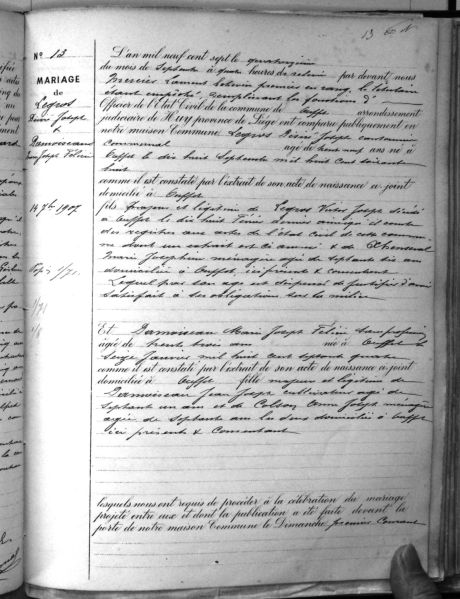 13
N° 13
MARIAGE
de
Legros
Pierre Joseph
&
Damoiseau
Marie Joseph Félicie
14 7bre 1907
L'an mil neuf cent sept le quatorzième
du mois de Septembre à quatre heures de relevée par devant nous
Mercier Camus Echevin premier en rang, le titulaire
étant empêché, remplissant la fonction d'
Officier de l'Etat Civil de la commune de Oeffet arrondissement
judiciaire de Huy province de Liége ont comparu publiquement en
notre maison Commune Legros Pierre Joseph cantonnier
communal âgé de trente neuf ans né à
Oeffet le dix huit Septembre mil huit cent soixante
huit
comme il est constaté par l'extrait de son acte de naissance ci-joint
domicilié à Oeffet
fils majeur et légitime de Legros Victor Joseph décédé
à Oeffet le dix huit
des registres aux actes de l'état Civil de cette commune
dont un extrait est ci annexé & de
Marie Josephine ménagère agée de septante six ans
domiciliée à Oeffet, ici présente & consentant
Lequel par son age est dispensé de justifier d'avoir
satisfait à ses obligations sur la milice
Et Damoiseau Marie Joseph Félicie sans profession
âgée de trente trois ans née à Oeffet le
Seize Janvier mil huit cent septante quatre
comme il est constaté par l'extrait de son acte de naissance ci-joint
domiciliée à Oeffet fille majeure et légitime de
Damoiseau Jean Joseph cultivateur agé de
Septante un ans et de Colson Anne Joseph ménagère
agée de Septante ans les deux domiciliés à Oeffet
ici présents & consentant
lesquels nous ont requis de procéder à la célébration du mariage
projeté entre eux et dont la publication a été faite devant la
porte de notre maison Commune le Dimanche premier Courant